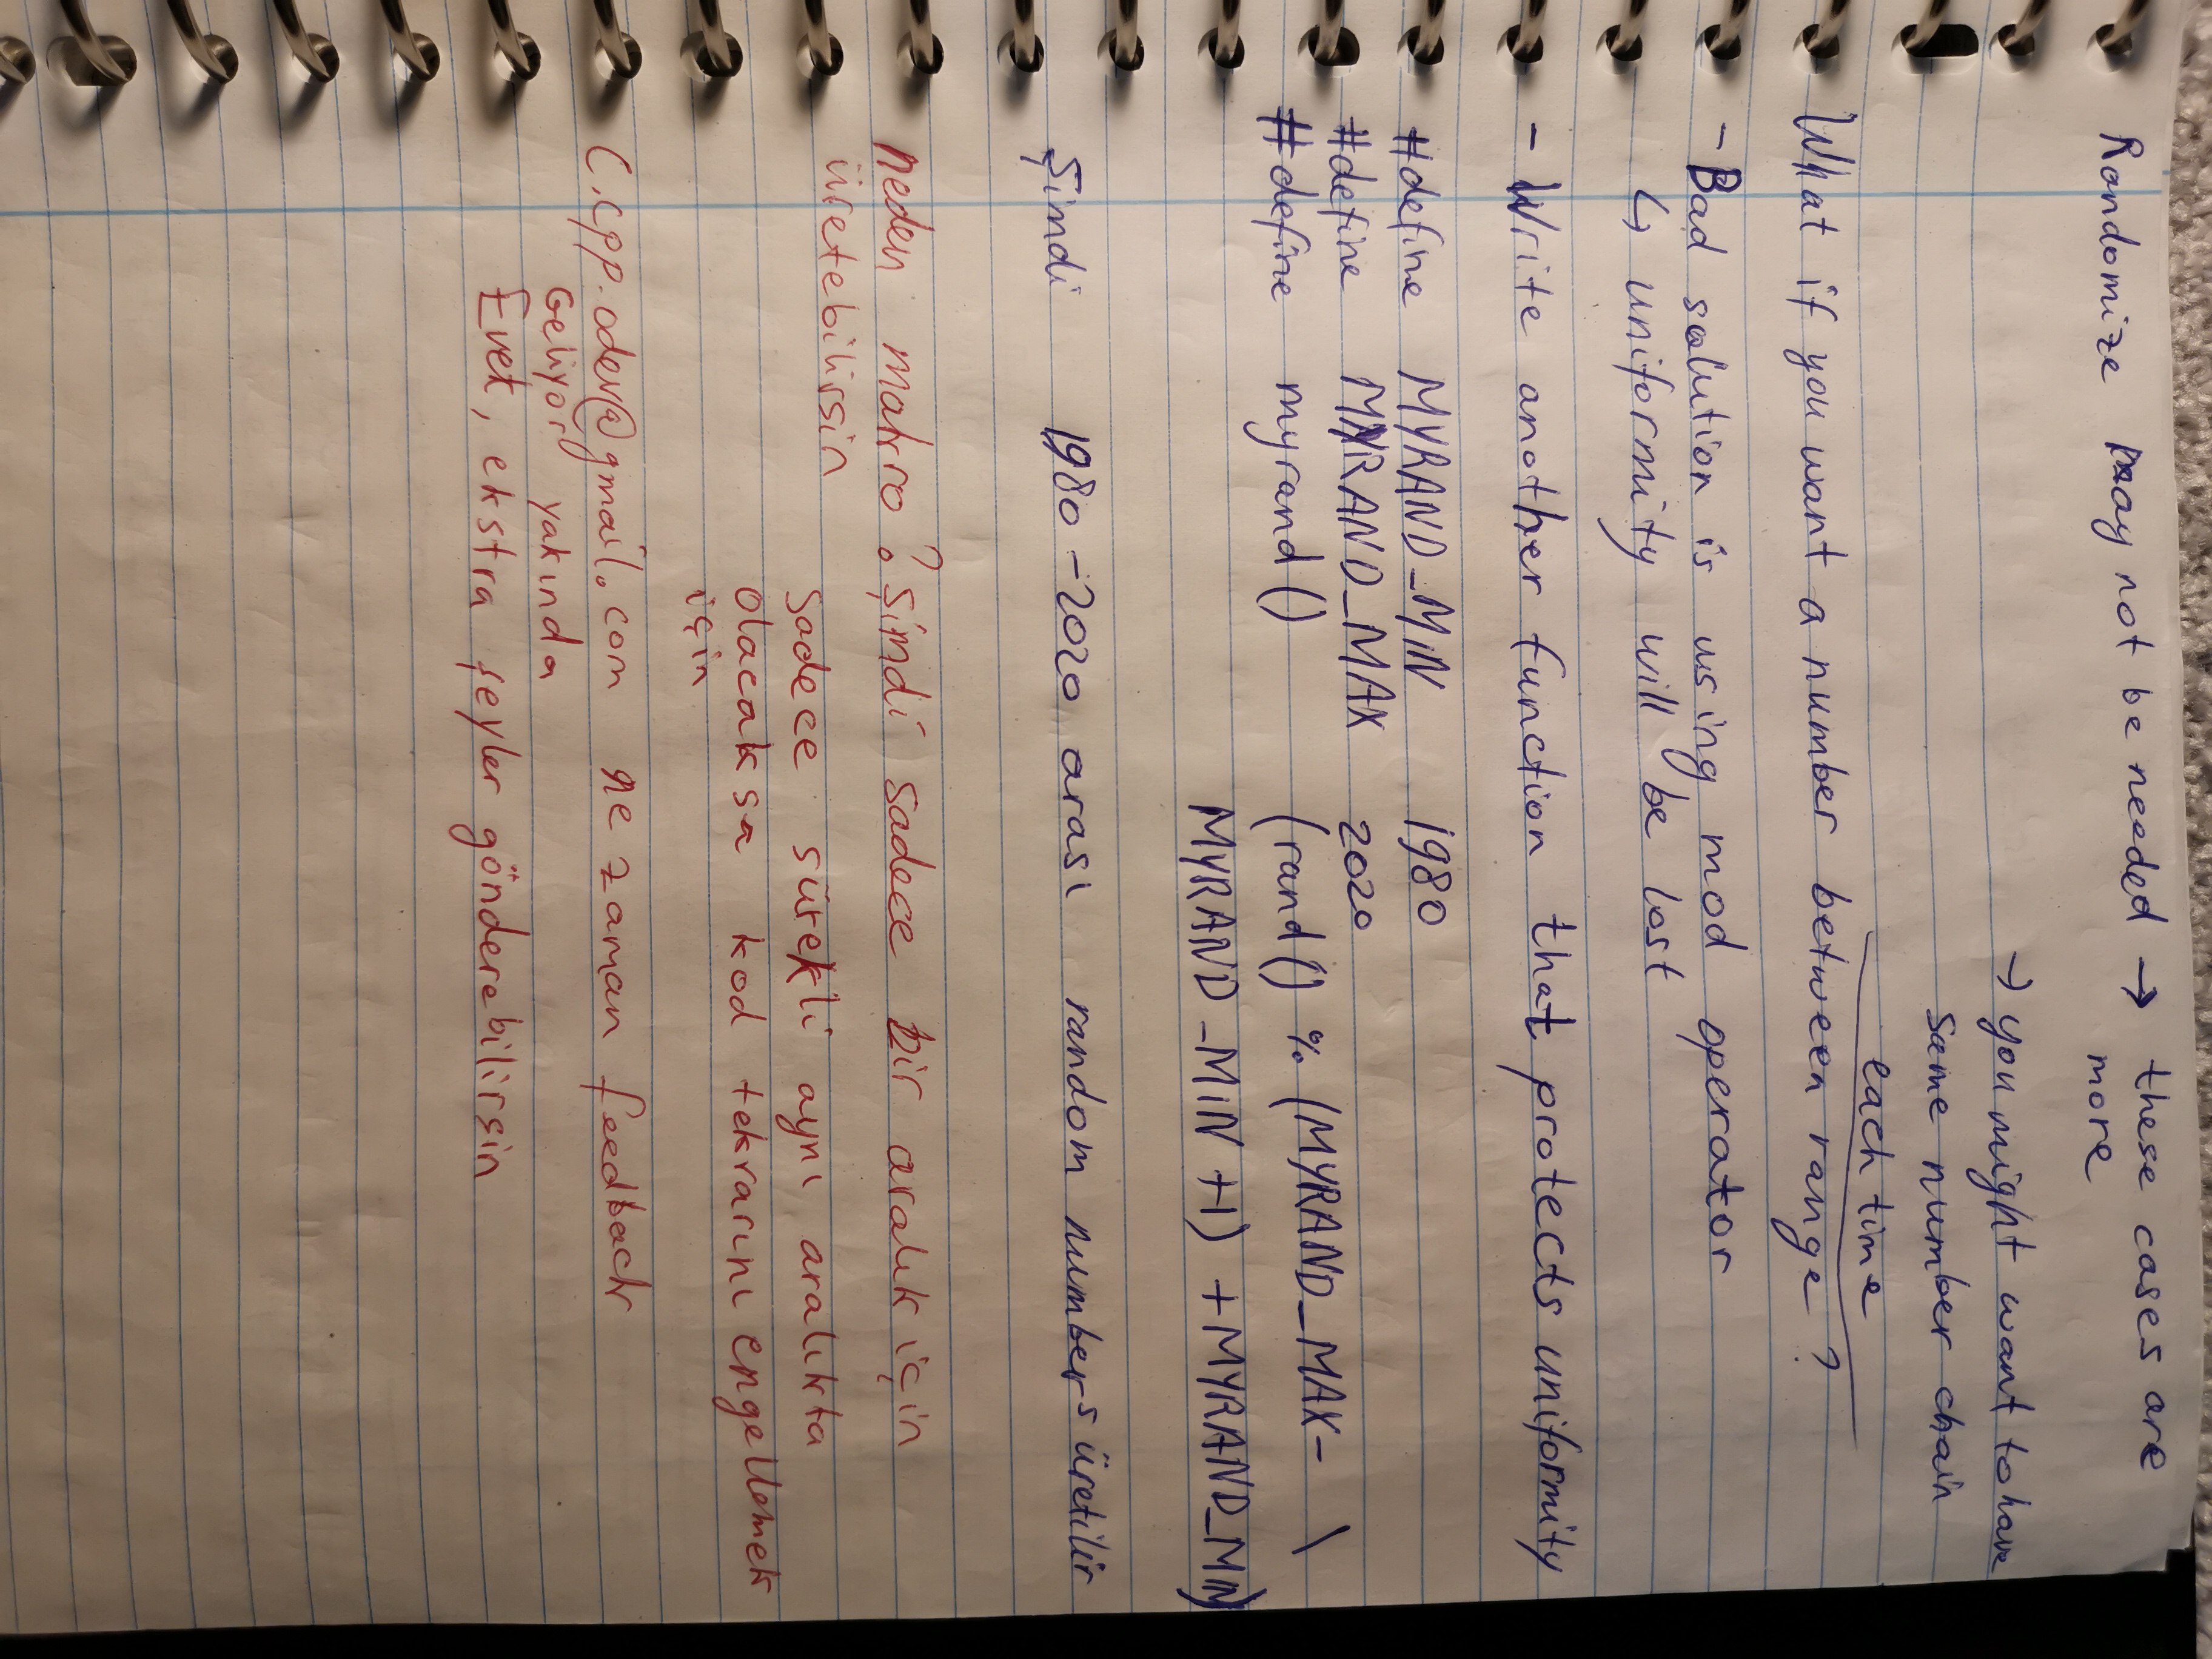 Randomize may not be needed → these cases are
more
→ you might want to have
same number chain
each time
What if you want a number between range ?
- Bad solution is using mod operator
↳ uniformity will be lost
- Write another function that protects uniformity
#define MYRAND_MIN 1980
#define MYRAND_MAX 2020
#define myrand() (rand() % (MYRAND_MAX- \
MYRAND_MIN +1) +MYRAND_MIN)
Şimdi 1980-2020 arası random numbers üretilir
neden makro? Şimdi sadece bir aralık için
üretebilirsin
Sadece sürekli aynı aralıkta
olacaksa kod tekrarını engellemek
için
C.cpp.odev@gmail.com ne zaman feedback
Geliyor yakında
Evet, ekstra şeyler gönderebilirsin